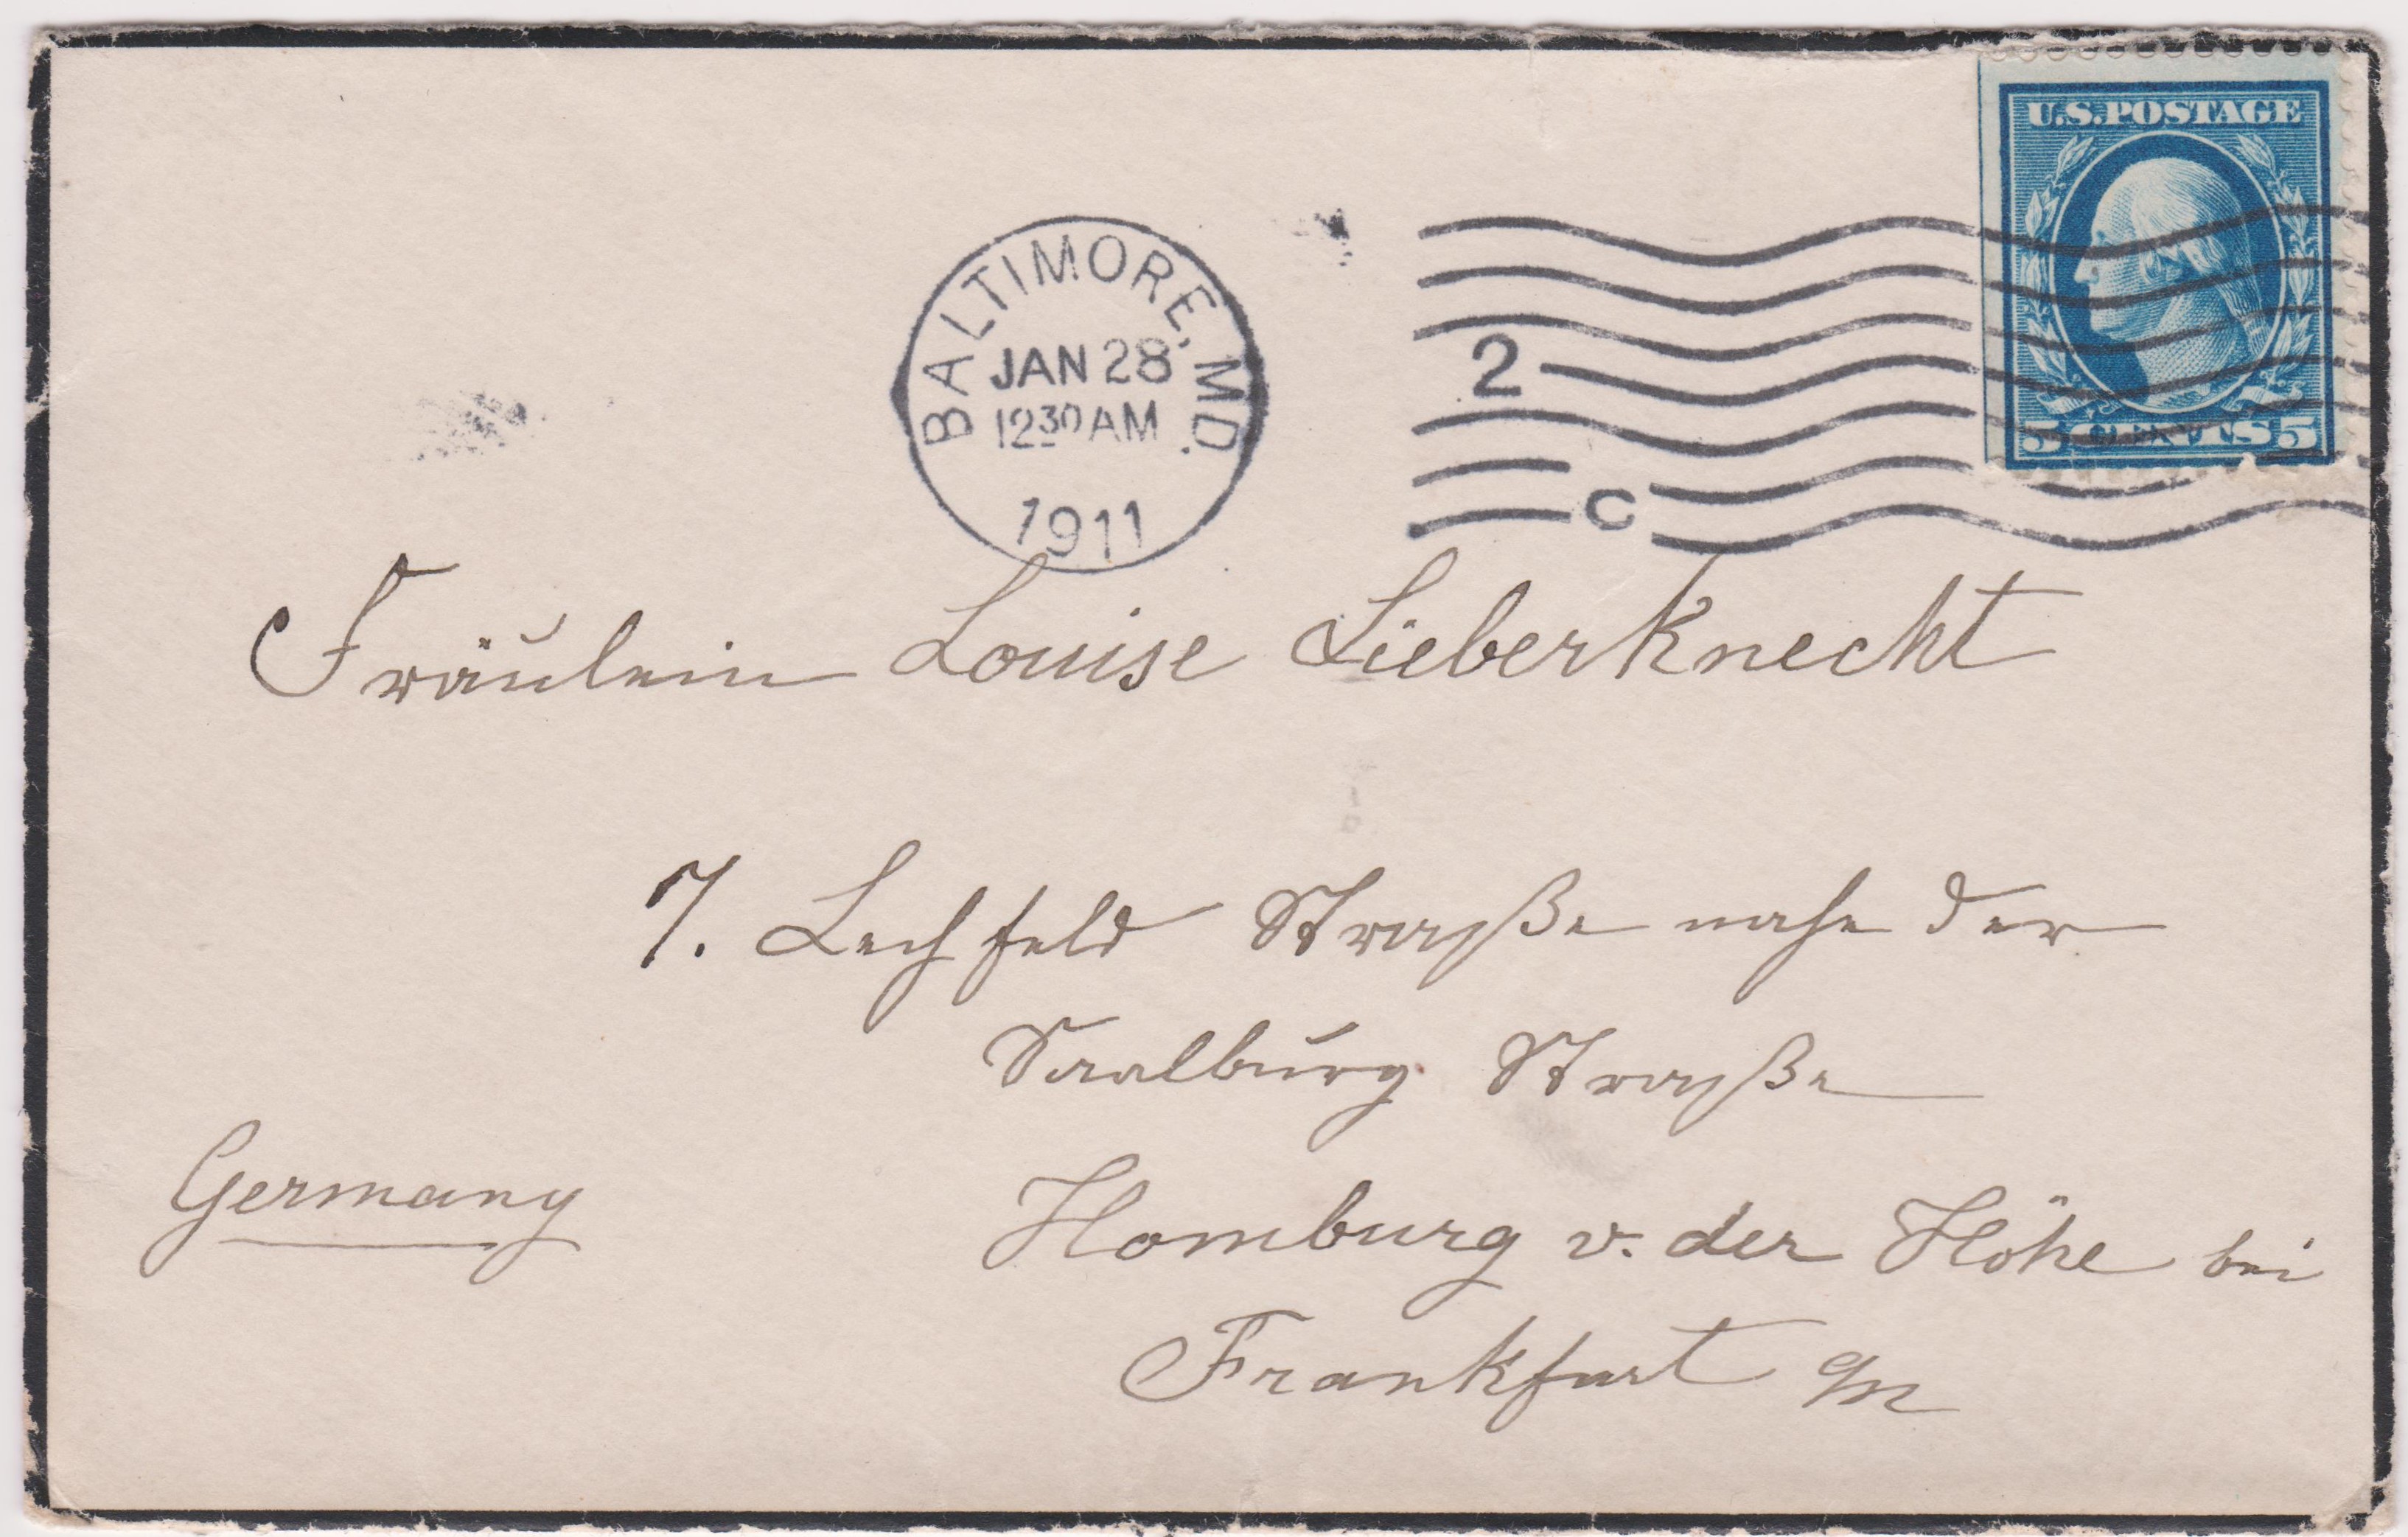 U.S.POSTAGE
5 CENTS 5
BALTIMORE, MD.
JAN 28
12 30 AM
1911
2
C
Fräulein Louise Lieberknecht
7. Lechfeld Straße nahe der
Saalburg Straße
Homburg v. der Höhe bei
Frankfurt a/M
Germany